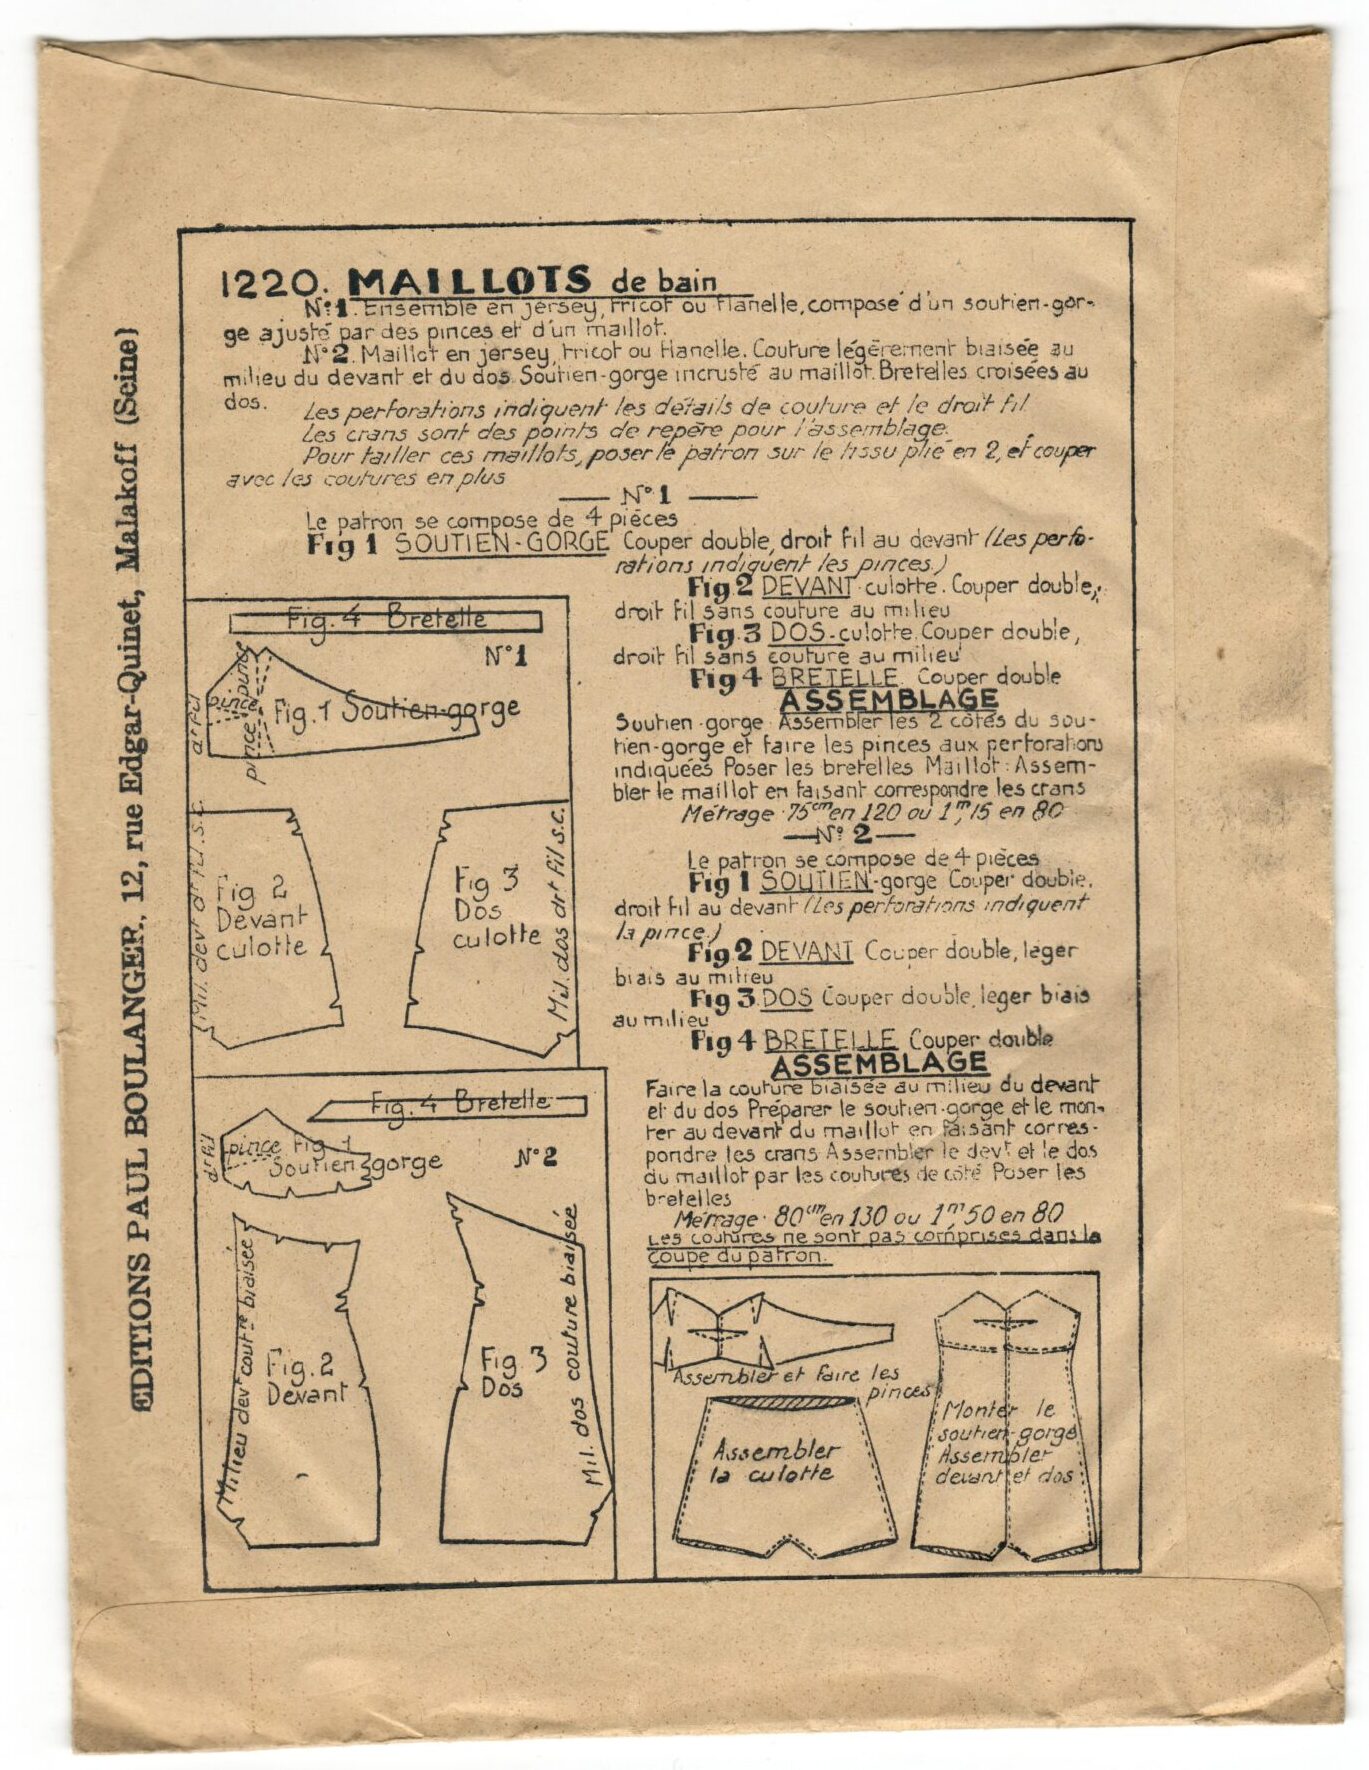 1220. MAILLOTS de bain
N°1. Ensemble en jersey, tricot ou flanelle, composé d'un soutien-gor-
ge ajusté par des pinces et d'un maillot.
N°2. Maillot en jersey, tricot ou flanelle. Couture légèrement biaisée au
milieu du devant et du dos. Soutien-gorge incrusté au maillot. Bretelles croisées au
dos.
Les perforations indiquent les détails de couture et le droit fil
Les crans sont des points de repère pour l'assemblage.
Pour tailler ces maillots, poser le patron sur le tissu plié en 2, et couper
avec les coutures en plus
N°1
Le patron se compose de 4 pièces
Fig 1 SOUTIEN-GORGE Couper double, droit fil au devant (Les perfo-
rations indiquent les pinces.)
Fig 2 DEVANT culotte. Couper double,
droit fil sans couture au milieu
Fig. 3 DOS-culotte. Couper double,
droit fil sans couture au milieu
Fig 4 BRETELLE. Couper double
ASSEMBLAGE
Soutien-gorge. Assembler les 2 côtés du sou-
tien-gorge et faire les pinces aux perforations
indiquées Poser les bretelles Maillot: Assem-
bler le maillot en faisant correspondre les crans
Métrage. 75cm en 120 ou 1m,15 en 80
N° 2
Le patron se compose de 4 pièces
Fig 1 SOUTIEN-gorge Couper double,
droit fil au devant (Les perforations indiquent
la pince.)
Fig 2 DEVANT Couper double, léger
biais au milieu
Fig 3. DOS Couper double, léger biais
au milieu
Fig 4 BRETELLE Couper double
ASSEMBLAGE
Faire la couture biaisée au milieu du devant
et du dos Préparer le soutien-gorge et le mon-
ter au devant du maillot en faisant corres-
pondre les crans Assembler le devt et le dos
du maillot par les coutures de côté Poser les
bretelles
Métrage. 80cm en 130 ou 1m50 en 80
Les coutures ne sont pas comprises dans la
coupe du patron.
Fig. 4 Bretelle
N°1
pince
pince
pince
Fig. 1 Soutien-gorge
dt fil
Mil. devt dt fil s.c.
Fig 2
Devant
culotte
Fig 3
Dos
culotte
Mil. dos drt fil s.c.
Fig. 4 Bretelle
N°2
dt fil
pince Fig 1
Soutien gorge
Milieu devt coutre biaisée
Fig. 2
Devant
Fig. 3
Dos
Mil. dos couture biaisée
Assembler et faire les
pinces
Assembler
la culotte
Monter le
soutien-gorge
Assembler
devant et dos
EDITIONS PAUL BOULANGER, 12, rue Edgar-Quinet, Malakoff (Seine)